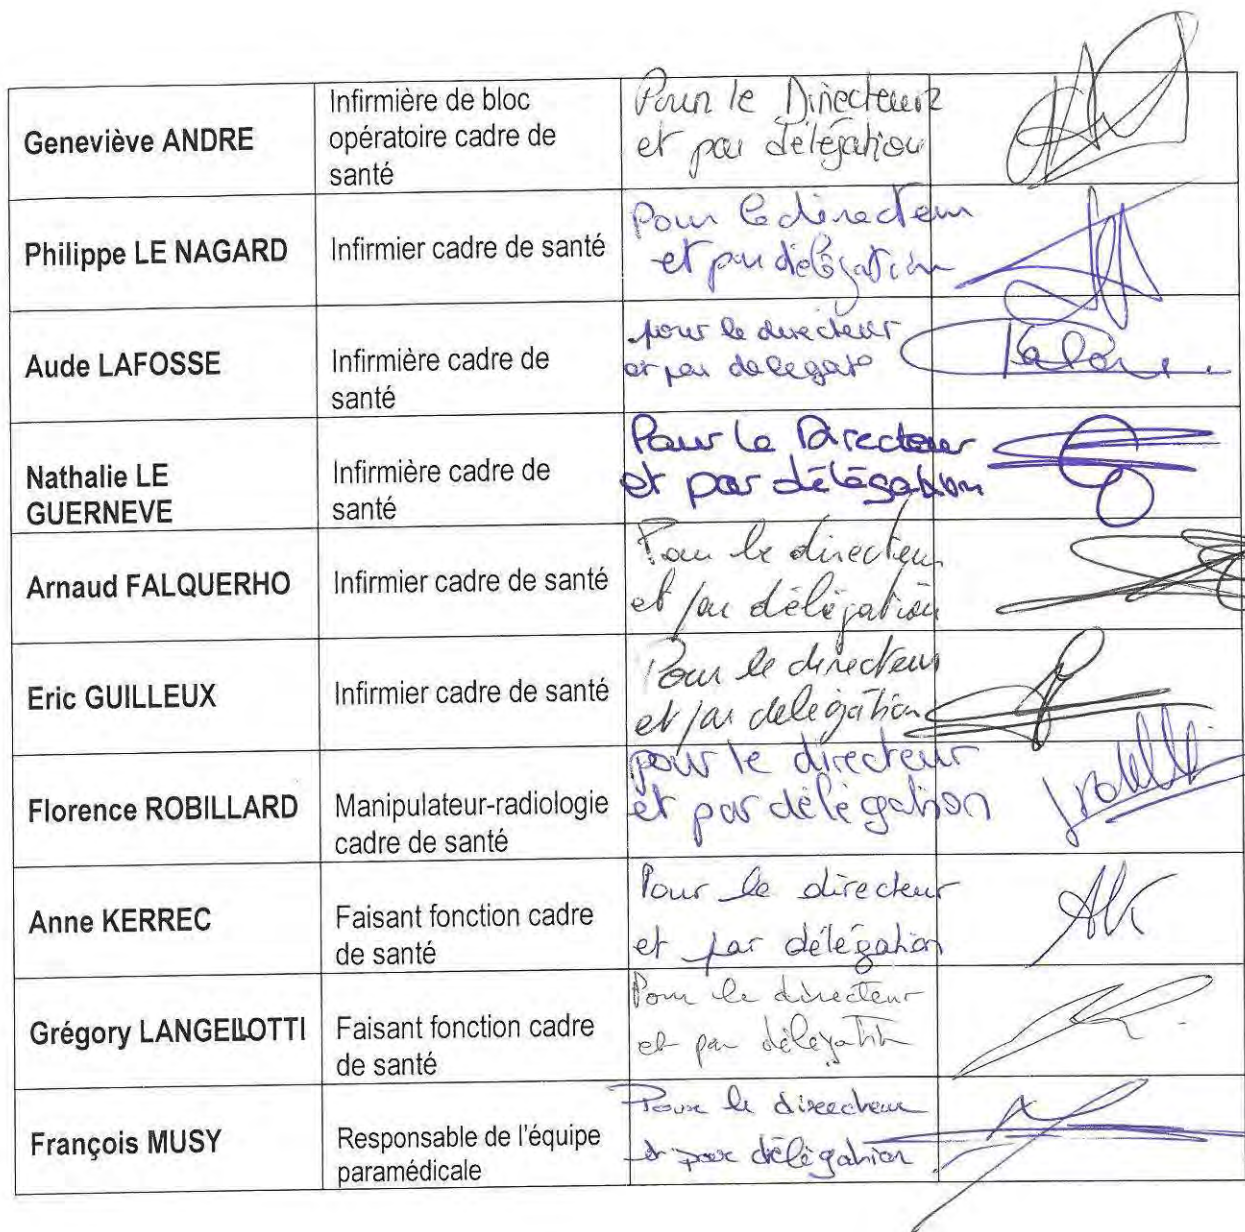 Geneviève ANDRE
Infirmière de bloc
opératoire cadre de
santé
Pour le Directeur
et par délégation
Philippe LE NAGARD
Infirmier cadre de santé
Pour le directeur
et par délégation
Aude LAFOSSE
Infirmière cadre de
santé
pour le directeur
et par delegat°
Nathalie LE
GUERNEVE
Infirmière cadre de
santé
Pour le Directeur
et par délégation
Arnaud FALQUERHO
Infirmier cadre de santé
Pour le directeur
et par délégation
Eric GUILLEUX
Infirmier cadre de santé
Pour le directeur
et par delegation
Florence ROBILLARD
Manipulateur-radiologie
cadre de santé
pour le directeur
et par délégation
Anne KERREC
Faisant fonction cadre
de santé
Pour le directeur
et par délégation
AK
Grégory LANGELLOTTI
Faisant fonction cadre
de santé
Pour le directeur
et par délégation
François MUSY
Responsable de l'équipe
paramédicale
Pour le directeur
et par délégation